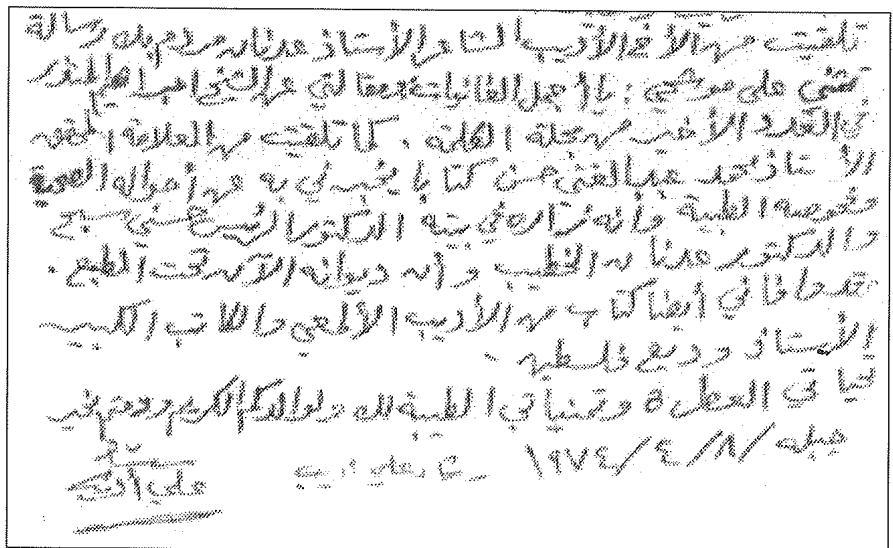 تلقيت من الأخ الأديب الشاعر الأستاذ عدنان مردم بك رسالة
تثني على موشحي : يا أجمل الغانيات ومقالتي عن الشيخ ابراهيم المنذر
في العدد الأخير من مجلة الكلمة . كما تلقيت من العلامة المحقق
الأستاذ محمد عبد الغني حسن كتابا يخبرني به عن أحواله الصحية
وفحوصه الطبية وأنه زاره في بيته الدكتور الرئيس حسني سبح
والدكتور عدنان الخطيب وأن ديوانه الآن تحت الطبع .
وقد وافاني أيضا كتاب من الأديب الألمعي والكاتب الكبير
الأستاذ وديع فلسطين .
تحياتي العطرة وتمنياتي الطيبة لك ولوالدكم الكريم ودمتم بخير
جبله ١٩٧٤/٤/٨/